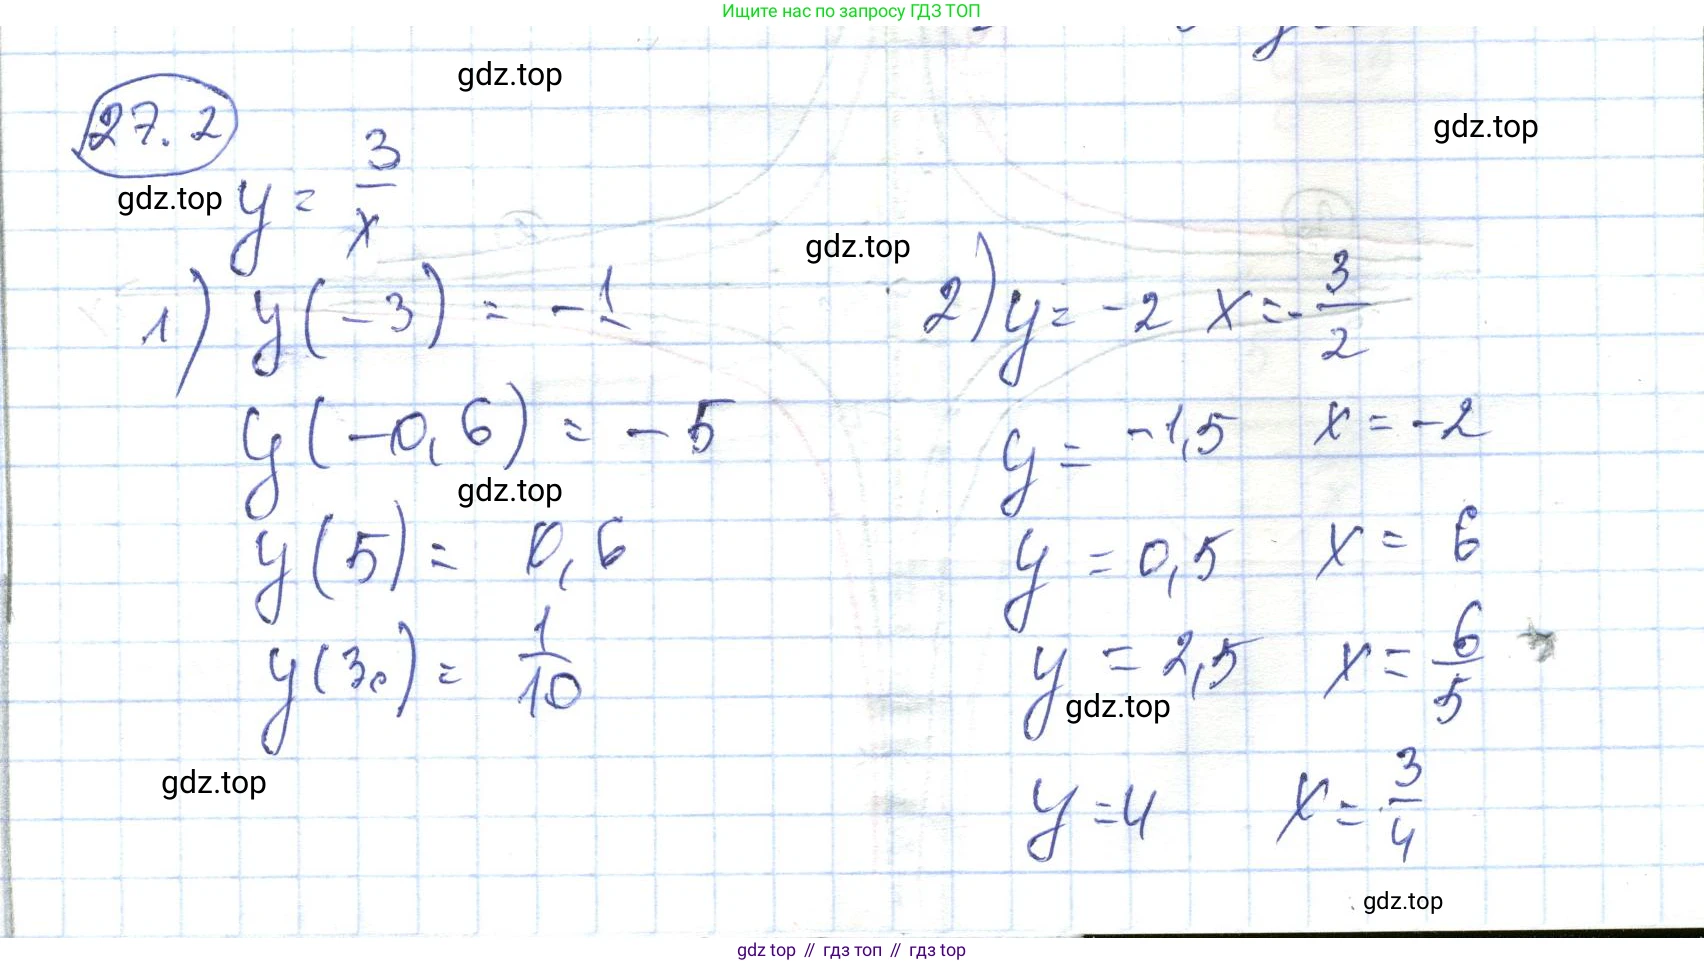 Ищите нас по запросу ГДЗ ТОП
gdz.top
27.2
gdz.top
gdz.top
y = 3/x
gdz.top
1) y(-3) = -1
y(-0,6) = -5
gdz.top
y(5) = 0,6
y(30) = 1/10
gdz.top
2) y = -2 x = -3/2
y = -1,5 x = -2
y = 0,5 x = 6
y = 2,5 x = 6/5
gdz.top
y = 4 x = 3/4
gdz.top
gdz top // гдз топ // гдз top